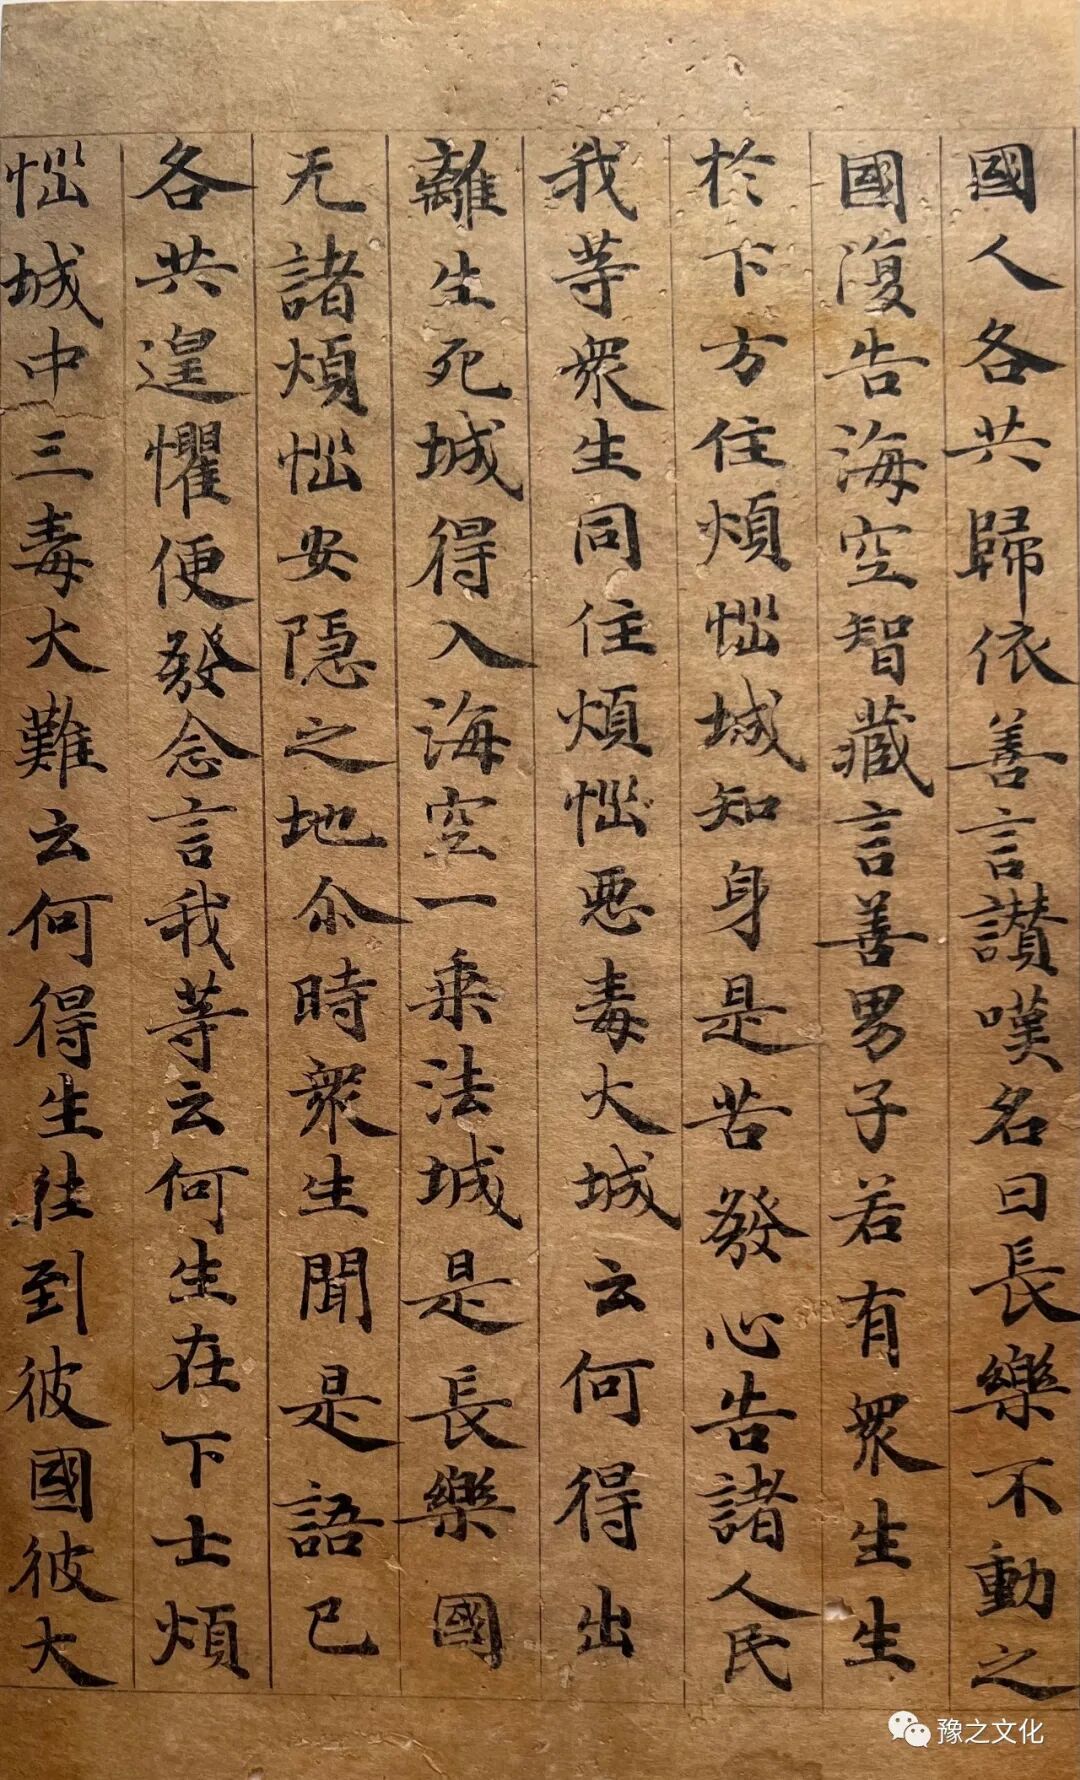 國人各共歸依善言讚嘆名曰長樂不動之
國復告海空智藏言善男子若有眾生生
於下方住煩惱城知身是苦發心告諸人民
我等眾生同住煩惱惡毒大城云何得出
離生死城得入海空一乘法城是長樂國
无諸煩惱安隱之地尒時眾生聞是語已
各共遑懼便發念言我等云何生在下土煩
惱城中三毒大難云何得生往到彼國彼大
豫之文化